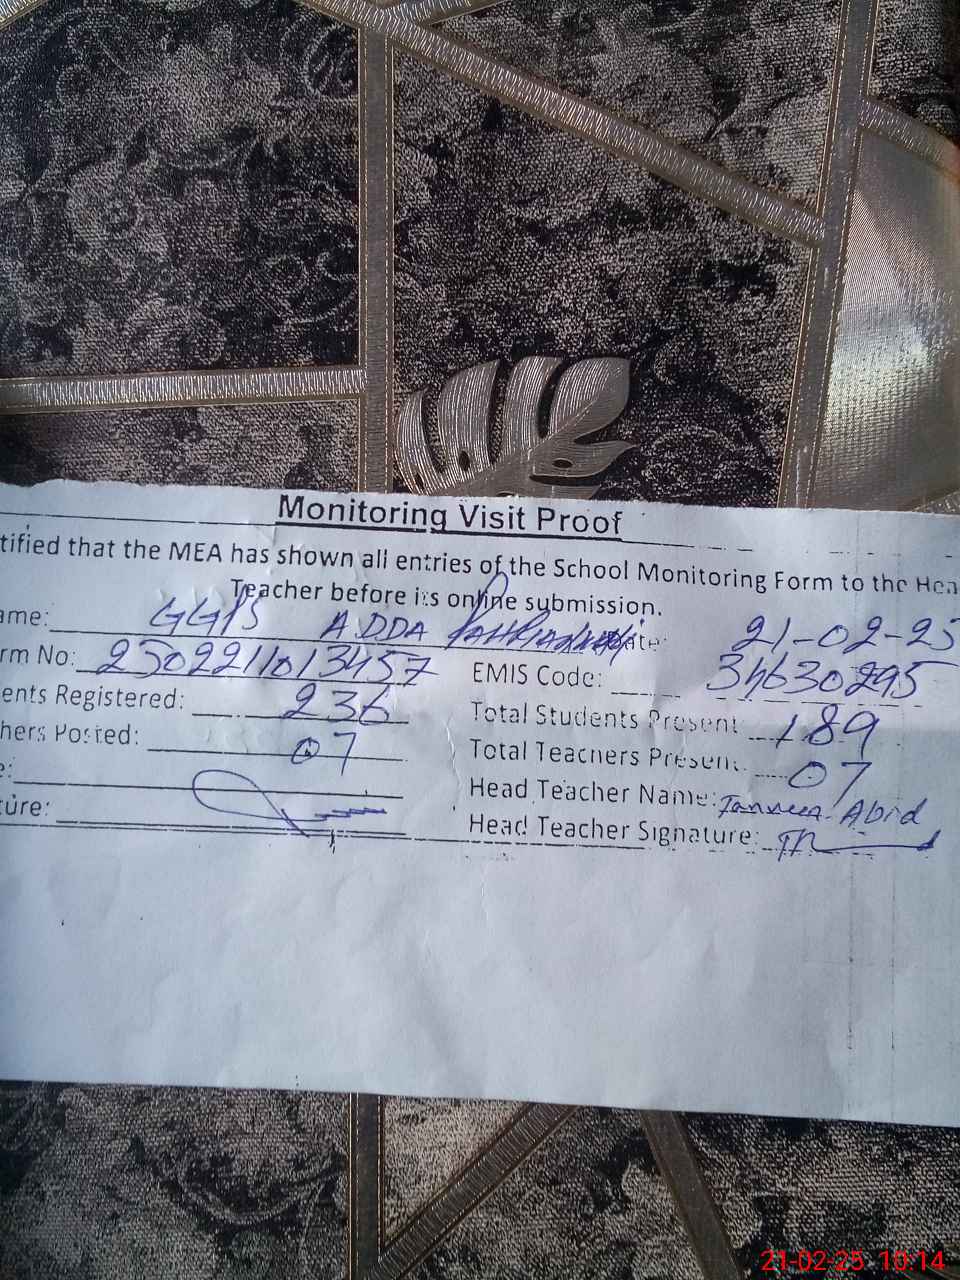 Monitoring Visit Proof
tified that the MEA has shown all entries of the School Monitoring Form to the Hea
Teacher before its online submission.
ame: GGPS ADDA ate: 21-02-25
rm No: 2502211013457 EMIS Code: 34630295
ents Registered: 236 Total Students Present: 189
hers Posted: 07 Total Teachers Present: 07
e: Head Teacher Name: Abid
ture: Head Teacher Signature:
21-02-25 10:14